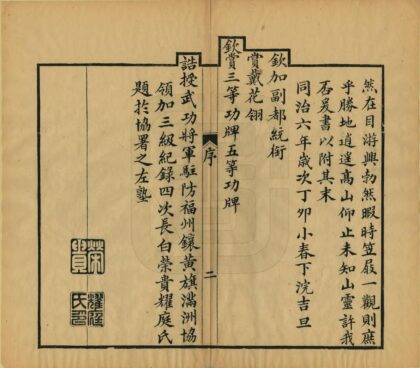 然在目游興勃然暇時笠屐一觀則庶
乎勝地逍遥高山仰止未知山靈許我
否爰書以附其末
同治六年歲次丁夘小春下浣吉旦
欽加副都統銜
賞戴花翎
欽賞三等功牌五等功牌
序
二
誥授武功將軍駐防福州鑲黄旗滿洲協
領加三級紀録四次長白榮貴耀庭氏
題於協署之左塾
榮貴
耀庭氏